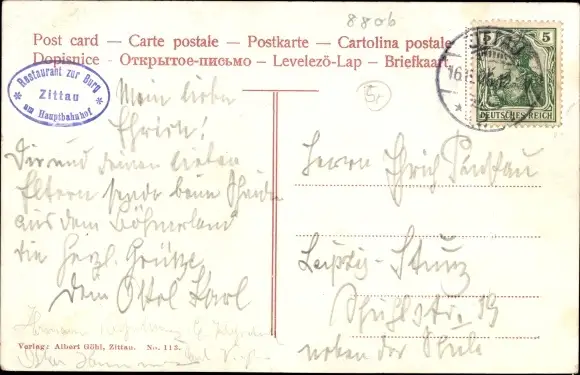 8806
Post card — Carte postale — Postkarte — Cartolina postale
Dopisnice — Открытое-письмо — Levelező-Lap — Briefkaart
Restaurant zur Burg
Zittau
am Hauptbahnhof
5
DEUTSCHES REICH
ZITTAU
16
Mein lieber
Ehrich!
Dir und deinen lieben
Eltern sendet beim Scheiden
aus dem Böhmerland
die herzl. Grüße
Dein Onkel Karl
Herrn Ehrich
Leipzig-Stünz
Schulstr. 19
neben der Schule
Verlag: Albert Göhl, Zittau. No. 113.